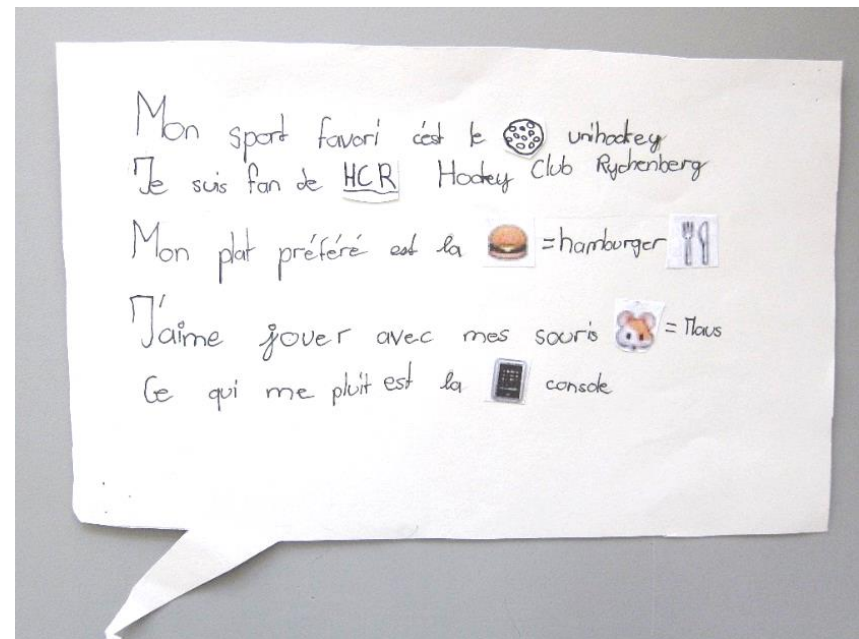 Mon sport favori c'est le unihockey
Je suis fan de HCR Hockey Club Rychenberg
Mon plat préféré est la =hamburger
J'aime jouer avec mes souris = Maus
Ce qui me pluit est la console